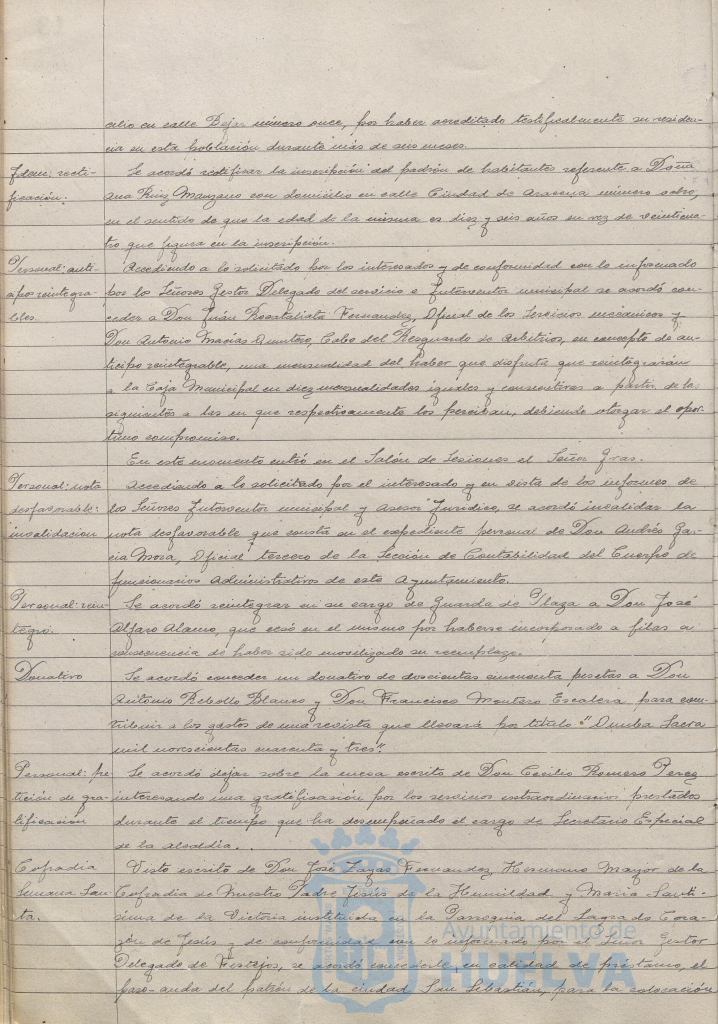 cilio en calle Bejar número once, por haber acreditado testificalmente su residen-
cia en esta población durante más de seis meses.
Idem: recti-
ficación:
Se acordó rectificar la inscripción del padrón de habitantes referente a Doña
Ana Ruiz Manzano con domicilio en calle Ciudad de Aracena número ocho,
en el sentido de que la edad de la misma es diez y seis años en vez de veinticua-
tro que figura en la inscripción.
Personal: anti-
cipos reintegra-
bles.
Accediendo a lo solicitado por los interesados y de conformidad con lo informado
por los Señores Gestor Delegado del servicio e Interventor municipal se acordó con-
ceder a Don Juan Fernandez, Oficial de los Servicios mecánicos y
Don Antonio Macias Quintero, Cabo del Resguardo de Arbitrios, en concepto de an-
ticipo reintegrable, una mensualidad del haber que disfruta que reintegrarán
a la Caja Municipal en diez mensualidades iguales y consecutivas a partir de las
siguientes a las en que respectivamente las perciban, debiendo otorgar el opor-
tuno compromiso.
En este momento entró en el Salón de Sesiones el Señor Gras.
Personal: nota
desfavorable:
invalidacion
Accediendo a lo solicitado por el interesado y en vista de los informes de
los Señores Interventor municipal y Asesor Jurídico, se acordó invalidar la
nota desfavorable que consta en el expediente personal de Don Andrés Gar-
cia Mora, Oficial tercero de la Sección de Contabilidad del Cuerpo de
funcionarios Administrativos de este Ayuntamiento.
Personal: rein-
tegro.
Se acordó reintegrar en su cargo de Guarda de Plaza a Don José
Alfaro Alamo, que cesó en el mismo por haberse incorporado a filas a
consecuencia de haber sido movilizado su reemplazo.
Donativo
Se acordó conceder un donativo de doscientas cincuenta pesetas a Don
Antonio Rebollo Blanco y Don Francisco Montero Escalera para con-
tribuir a los gastos de una revista que llevará por título "Onuba Sacra
mil novecientos cuarenta y tres".
Personal: pe-
tición de gra-
tificación
Se acordó dejar sobre la mesa escrito de Don Cecilio Romero Perez
interesando una gratificación por los servicios extraordinarios prestados
durante el tiempo que ha desempeñado el cargo de Secretario Especial
de la alcaldía.
Cofradia
Semana San-
ta.
Visto escrito de Don José Zayas Fernandez, Hermano Mayor de la
Cofradia de Nuestro Padre Jesús de la Humildad y Maria Santí-
sima de la Victoria instituida en la Parroquia del Sagrado Cora-
zón de Jesús y de conformidad con lo informado por el Señor Gestor
Delegado de Festejos, se acordó concederle, en calidad de préstamo, el
paso-anda del patrón de la ciudad San Sebastián, para la colocación
Ayuntamiento de
HUELVA